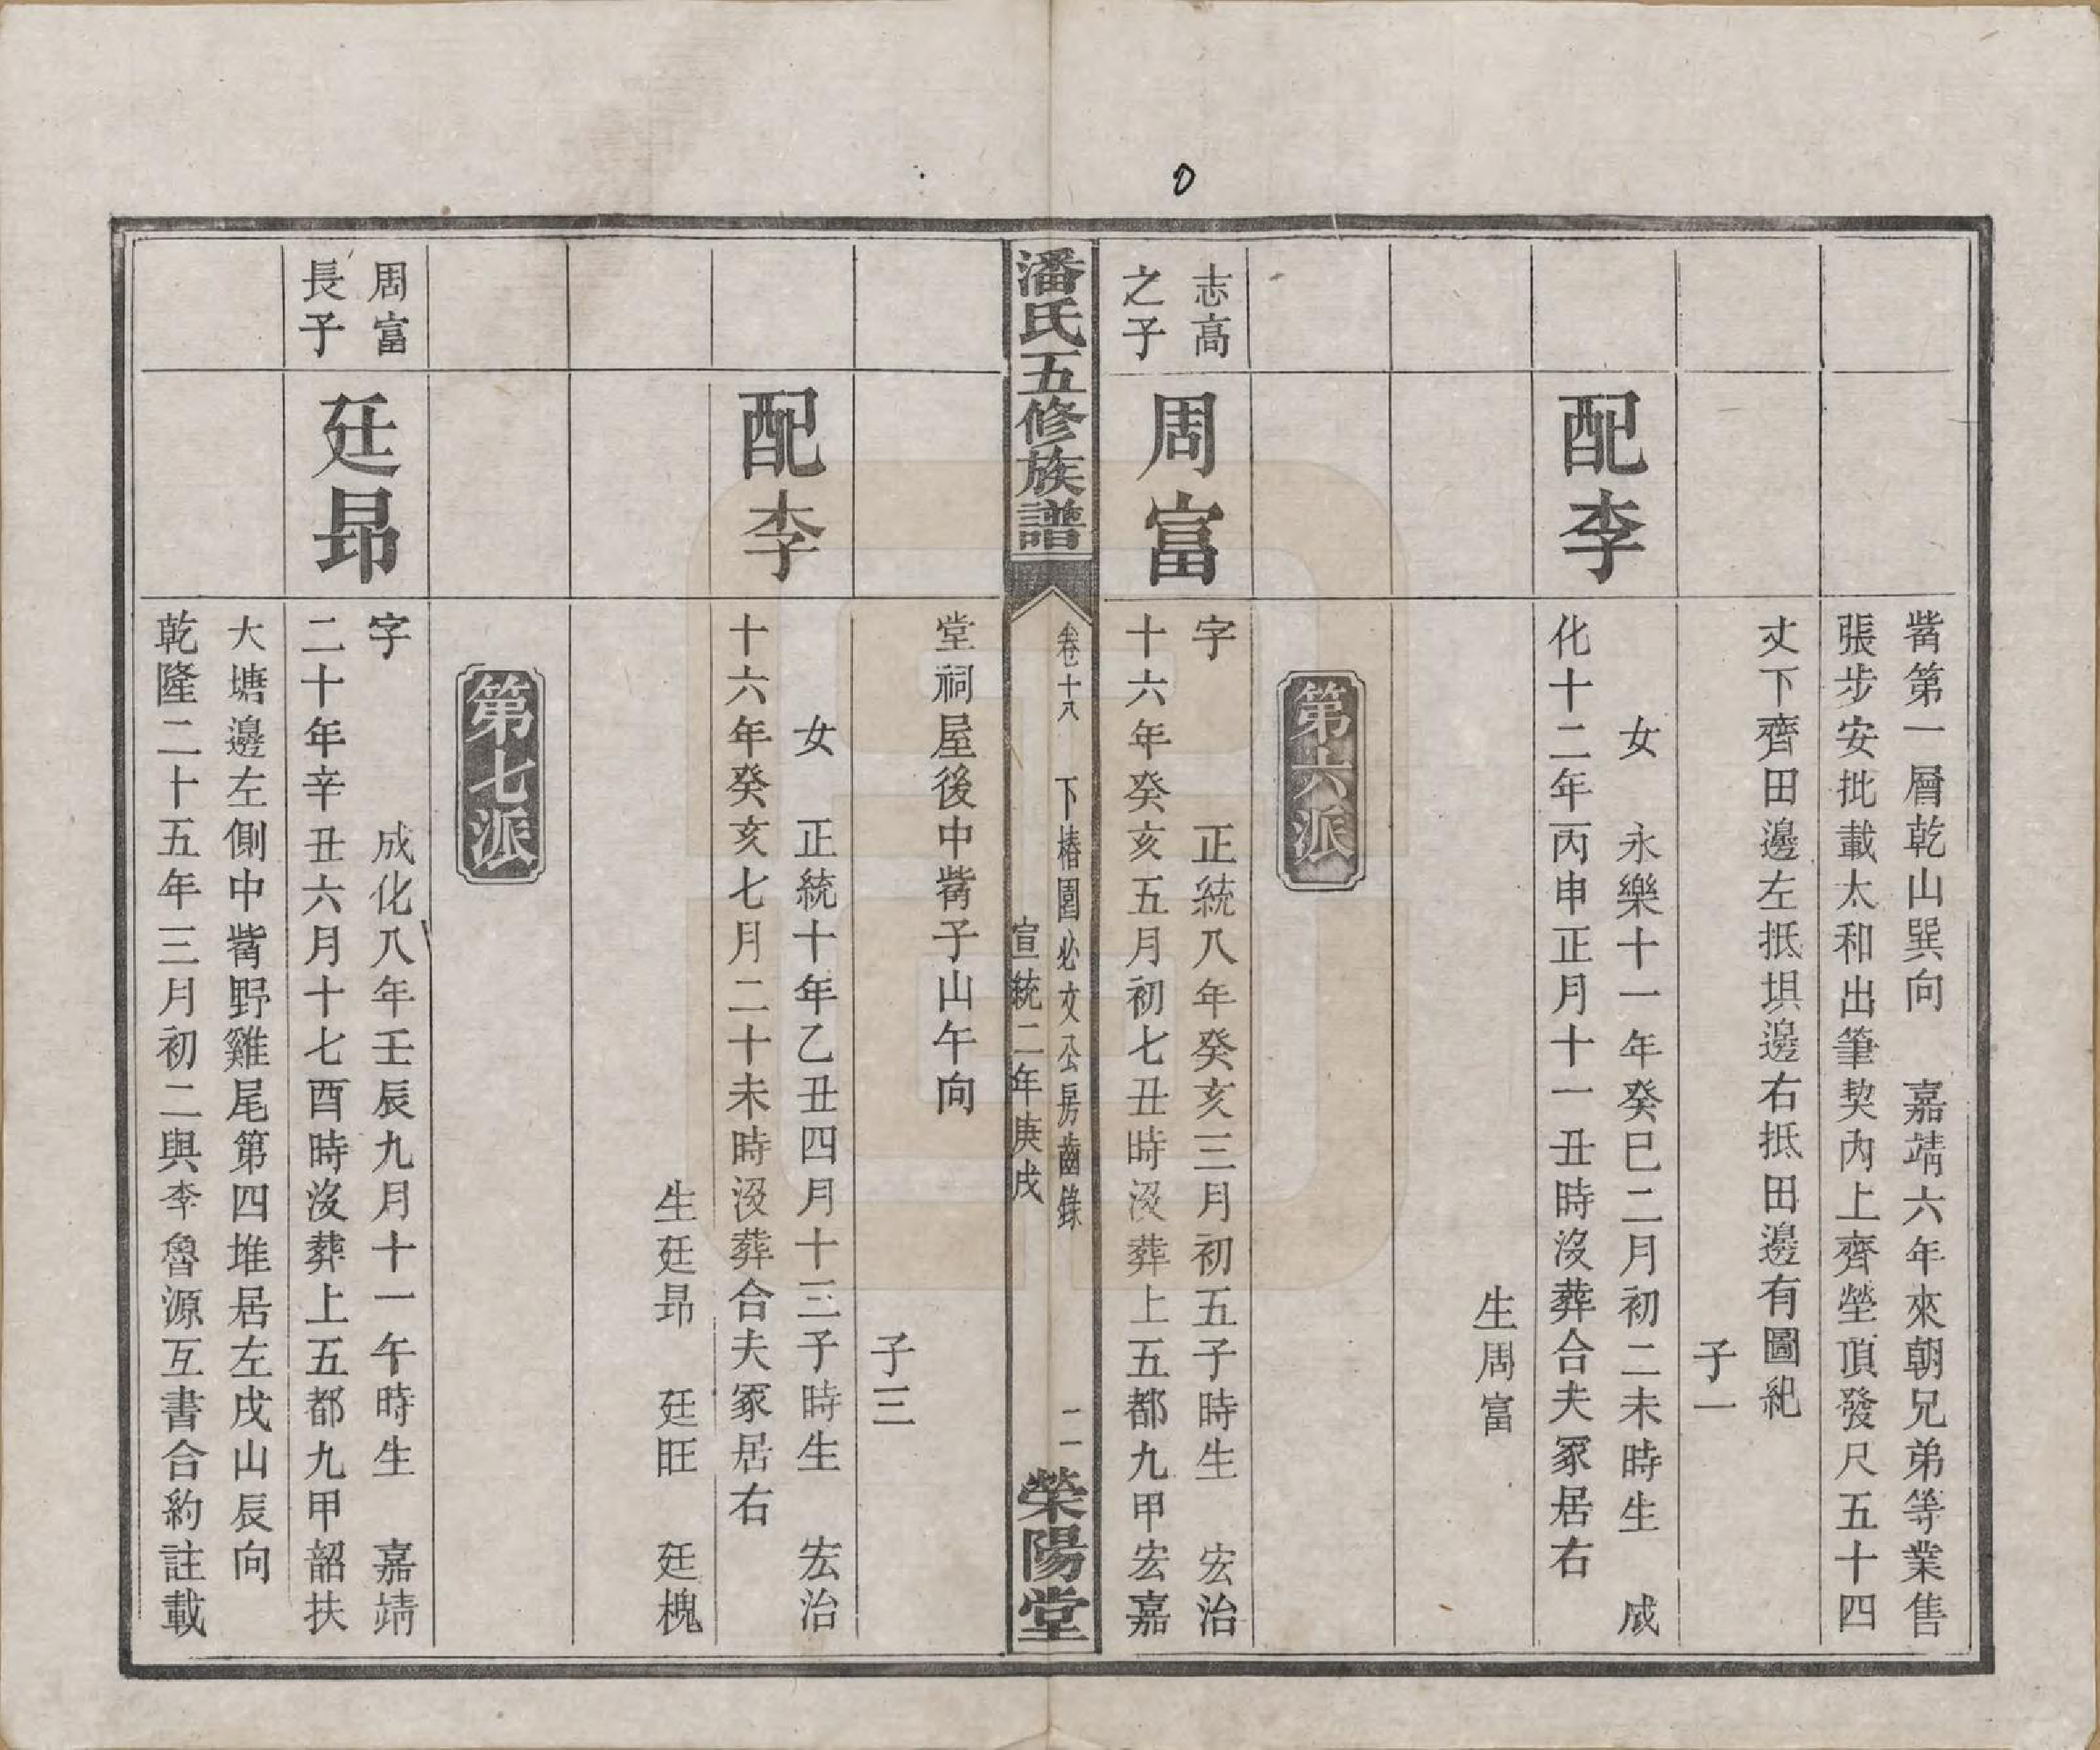 觜第一層乾山巽向　嘉靖六年來朝兄弟等業售
張步安批載太和出筆契內上齊塋頂發尺五十四
丈下齊田邊左抵垻邊右抵田邊有圖紀
子一
配李
女　永樂十一年癸巳二月初二未時生　成
化十二年丙申正月十一丑時沒葬合夫冢居右
生周富
第六派
志高
之子
周富
字　正統八年癸亥三月初五子時生　宏治
十六年癸亥五月初七丑時沒葬上五都九甲宏嘉
潘氏五修族譜
卷十八　下椿園必文公房齒錄
宣統二年庚戌
二
榮陽堂
堂祠屋後中觜子山午向
子三
配李
女　正統十年乙丑四月十三子時生　宏治
十六年癸亥七月二十未時沒葬合夫冢居右
生廷昂　廷旺　廷槐
第七派
周富
長子
廷昂
字　成化八年壬辰九月十一午時生　嘉靖
二十年辛丑六月十七酉時沒葬上五都九甲韶扶
大塘邊左側中觜野雞尾第四堆居左戌山辰向
乾隆二十五年三月初二與李魯源互書合約註載